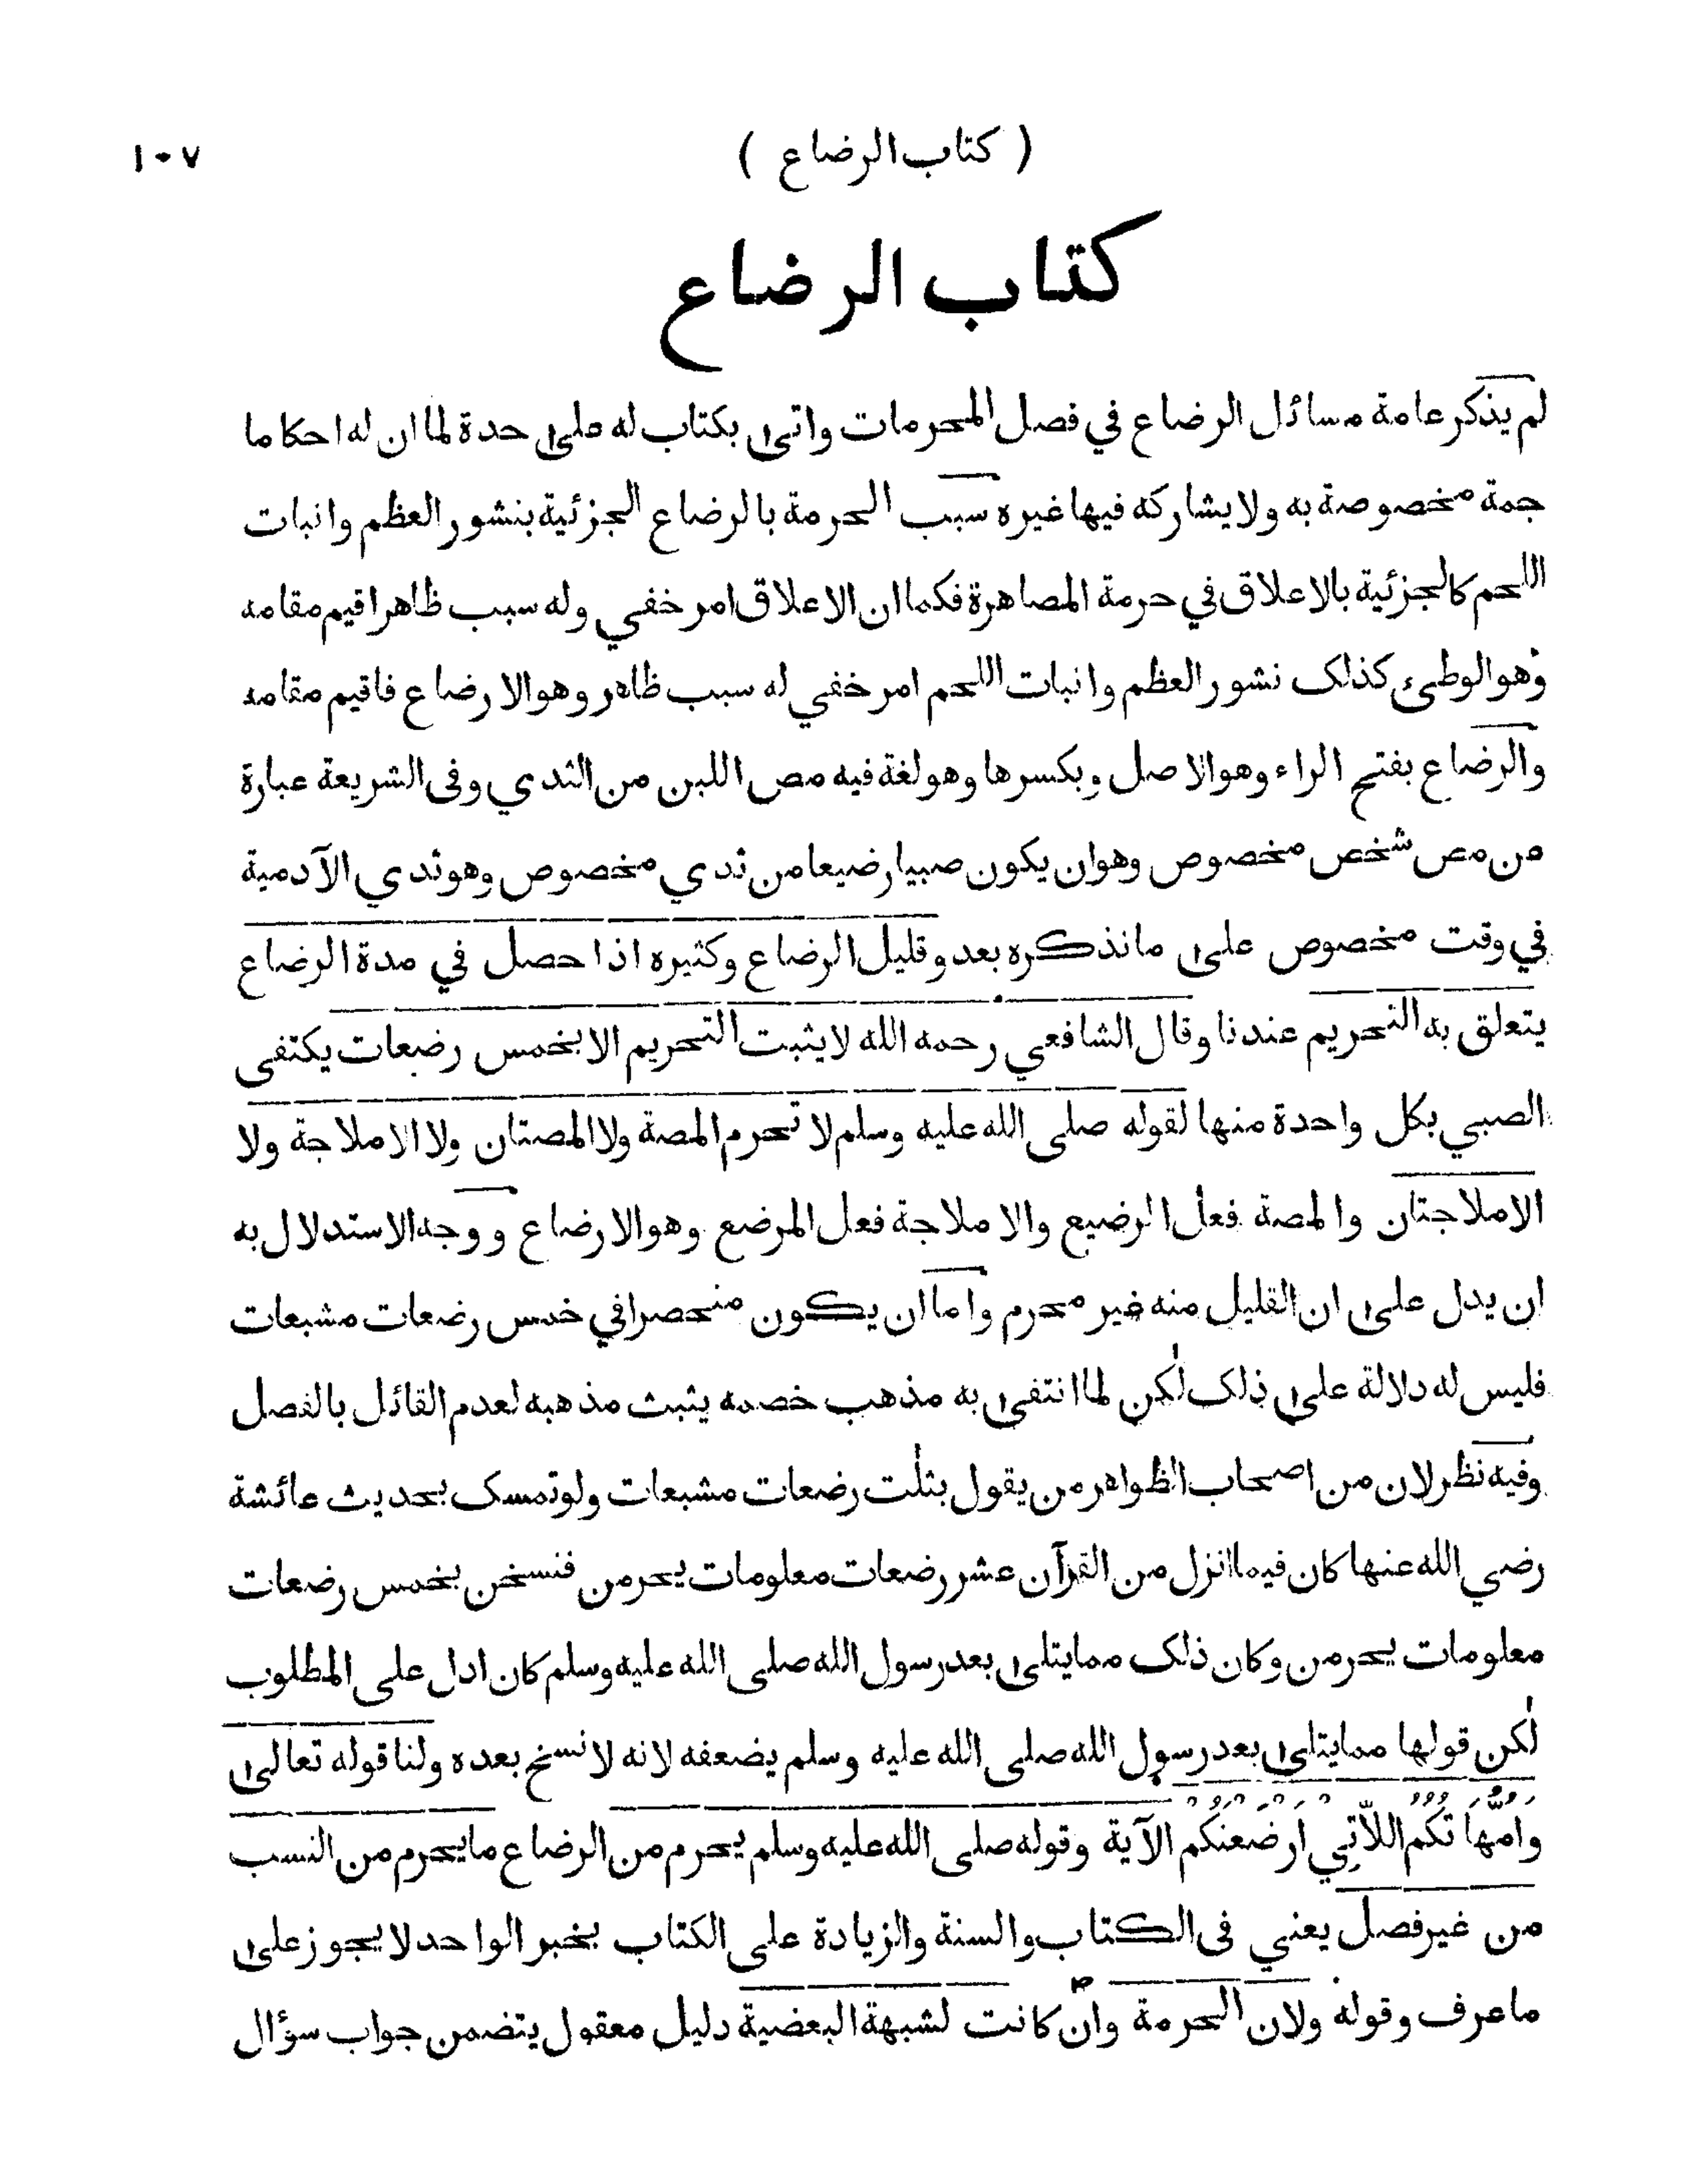 ( كتاب الرضاع ) ١٠٧
كتاب الرضاع
لم يذكر عامة مسائل الرضاع في فصل المحرمات واتى بكتاب له على حدة لما ان له احكاما
جمة مخصوصة به ولا يشاركه فيها غيره سبب الحرمة بالرضاع الجزئية بنشور العظم وانبات
اللحم كالجزئية بالاعلاق في حرمة المصاهرة فكما ان الاعلاق امر خفي وله سبب ظاهر اقيم مقامه
وهو الوطىء كذلك نشور العظم وانبات اللحم امر خفي له سبب ظاهر وهو الارضاع فاقيم مقامه
والرضاع بفتح الراء وهو الاصل وبكسرها وهو لغة فيه مص اللبن من الثدي وفى الشريعة عبارة
من مص شخص مخصوص وهو ان يكون صبيا رضيعا من ثدي مخصوص وهو ثدي الآدمية
في وقت مخصوص على ما نذكره بعد وقليل الرضاع وكثيره اذا حصل في مدة الرضاع
يتعلق به التحريم عندنا وقال الشافعي رحمه الله لا يثبت التحريم الا بخمس رضعات يكتفى
الصبي بكل واحدة منها لقوله صلى الله عليه وسلم لا تحرم المصة ولا المصتان ولا الاملاجة ولا
الاملاجتان والمصة فعل الرضيع والاملاجة فعل المرضع وهو الارضاع ووجه الاستدلال به
ان يدل على ان القليل منه غير محرم واما ان يكون منحصرا في خمس رضعات مشبعات
فليس له دلالة على ذلك لٰكن لما انتفى به مذهب خصمه يثبت مذهبه لعدم القائل بالفصل
وفيه نظر لان من اصحاب الظواهر من يقول بثلٰت رضعات مشبعات ولو تمسك بحديث عائشة
رضي الله عنها كان فيما انزل من القرآن عشر رضعات معلومات يحرمن فنسخن بخمس رضعات
معلومات يحرمن وكان ذلك مما يتلى بعد رسول الله صلى الله عليه وسلم كان ادل على المطلوب
لٰكن قولها مما يتلى بعد رسول الله صلى الله عليه وسلم يضعفه لانه لا نسخ بعده ولنا قوله تعالى
وَاُمَّهَاتُكُمُ اللَّاتِي اَرْضَعْنَكُمْ الآية وقوله صلى الله عليه وسلم يحرم من الرضاع ما يحرم من النسب
من غير فصل يعني فى الكتاب والسنة والزيادة على الكتاب بخبر الواحد لا يجوز على
ما عرف وقوله ولان الحرمة وان كانت لشبهة البعضية دليل معقول يتضمن جواب سؤال